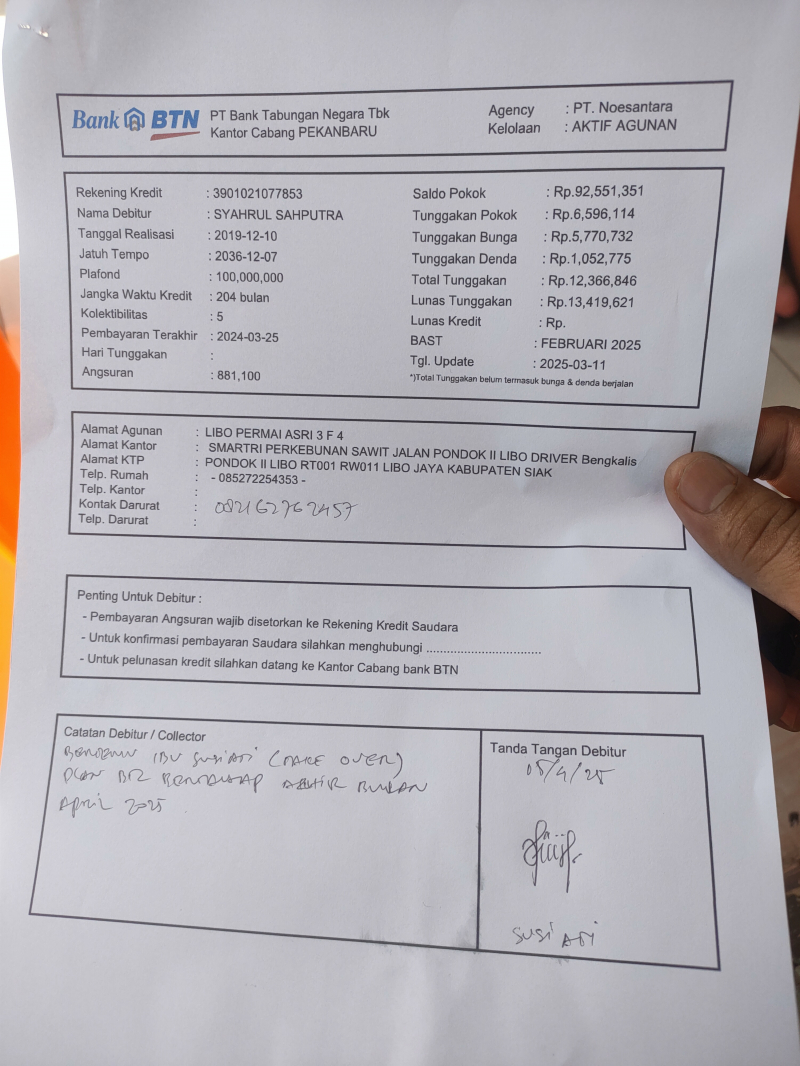 Bank BTN
PT Bank Tabungan Negara Tbk
Kantor Cabang PEKANBARU
Agency : PT. Noesantara
Kelolaan : AKTIF AGUNAN
Rekening Kredit : 3901021077853
Nama Debitur : SYAHRUL SAHPUTRA
Tanggal Realisasi : 2019-12-10
Jatuh Tempo : 2036-12-07
Plafond : 100,000,000
Jangka Waktu Kredit : 204 bulan
Kolektibilitas : 5
Pembayaran Terakhir : 2024-03-25
Hari Tunggakan :
Angsuran : 881,100
Saldo Pokok : Rp.92,551,351
Tunggakan Pokok : Rp.6,596,114
Tunggakan Bunga : Rp.5,770,732
Tunggakan Denda : Rp.1,052,775
Total Tunggakan : Rp.12,366,846
Lunas Tunggakan : Rp.13,419,621
Lunas Kredit : Rp.
BAST : FEBRUARI 2025
Tgl. Update : 2025-03-11
*)Total Tunggakan belum termasuk bunga & denda berjalan
Alamat Agunan : LIBO PERMAI ASRI 3 F 4
Alamat Kantor : SMARTRI PERKEBUNAN SAWIT JALAN PONDOK II LIBO DRIVER Bengkalis
Alamat KTP : PONDOK II LIBO RT001 RW011 LIBO JAYA KABUPATEN SIAK
Telp. Rumah : - 085272254353 -
Telp. Kantor :
Kontak Darurat : 082162762457
Telp. Darurat :
Penting Untuk Debitur :
- Pembayaran Angsuran wajib disetorkan ke Rekening Kredit Saudara
- Untuk konfirmasi pembayaran Saudara silahkan menghubungi ..................................
- Untuk pelunasan kredit silahkan datang ke Kantor Cabang bank BTN
Catatan Debitur / Collector
IBU SUSIATI (TAKE OVER)
BERTAHAP AKHIR BULAN
April 2025
Tanda Tangan Debitur
05/4/25
SUSIATI